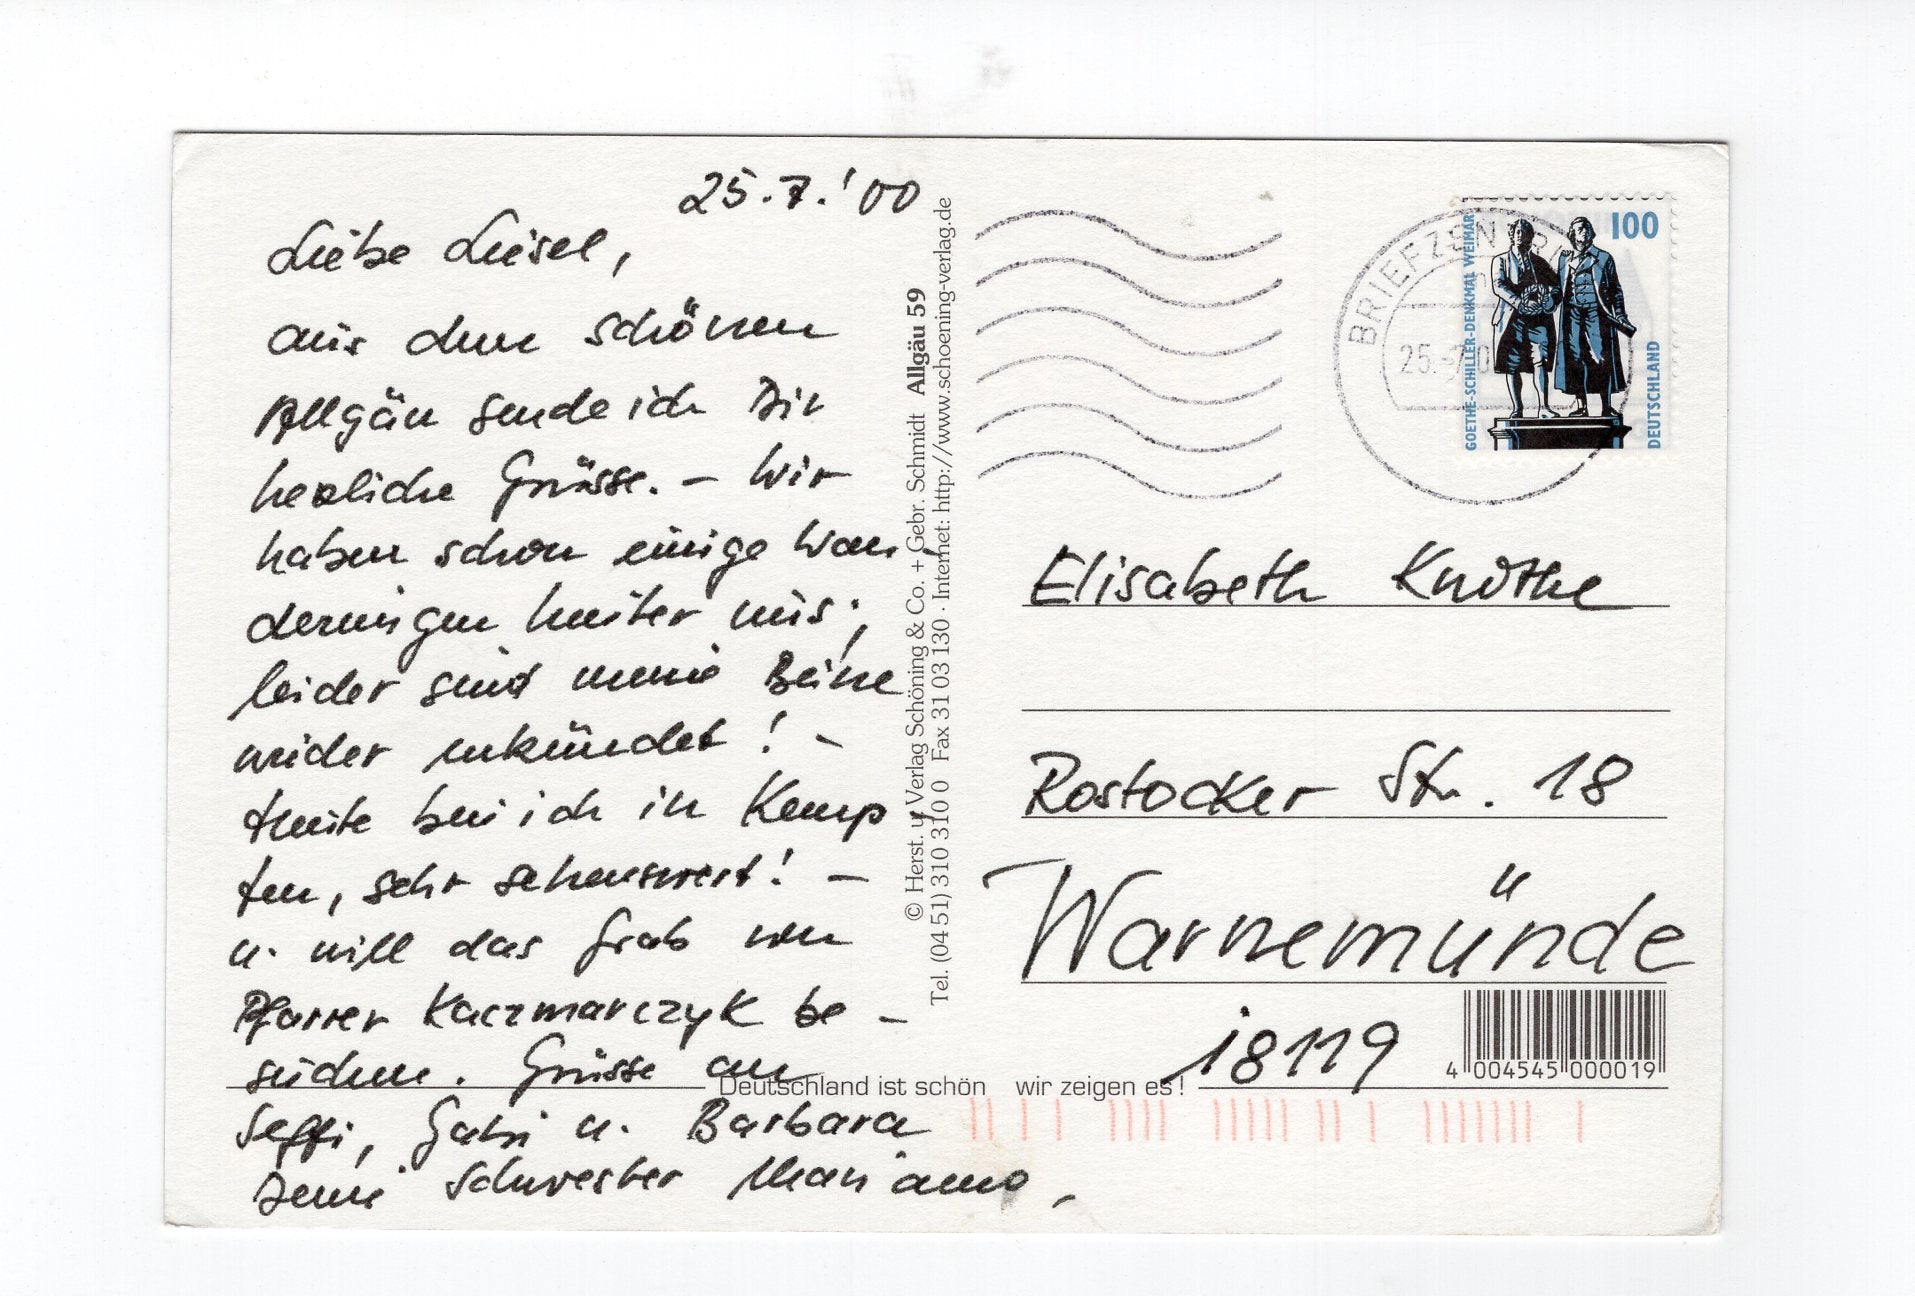 25.7.'00
Liebe Liesel,
aus dem schönen
Allgäu sende ich Dir
herzliche Grüsse. – Wir
haben schon einige Wan-
derungen hinter uns;
leider sind meine Beine
wieder entzündet! –
Heute bin ich in Kemp
ten, sehr sehenswert! –
u. will das Grab von
Pfarrer Kaczmarczyk be-
suchen. Grüsse an
Seffi, Gabi u. Barbara
Deine Schwester
© Herst. u. Verlag Schöning & Co. + Gebr. Schmidt Allgäu 59
Tel. (04 51) 310 310 0 Fax 31 03 130 · Internet: http://www.schoening-verlag.de
BRIEFZENTRUM
25.-7.0
100
GOETHE-SCHILLER-DENKMAL WEIMAR
DEUTSCHLAND
Elisabeth Knothe
Rostocker Str. 18
Warnemünde
18119
4 004545 000019
Deutschland ist schön wir zeigen es!